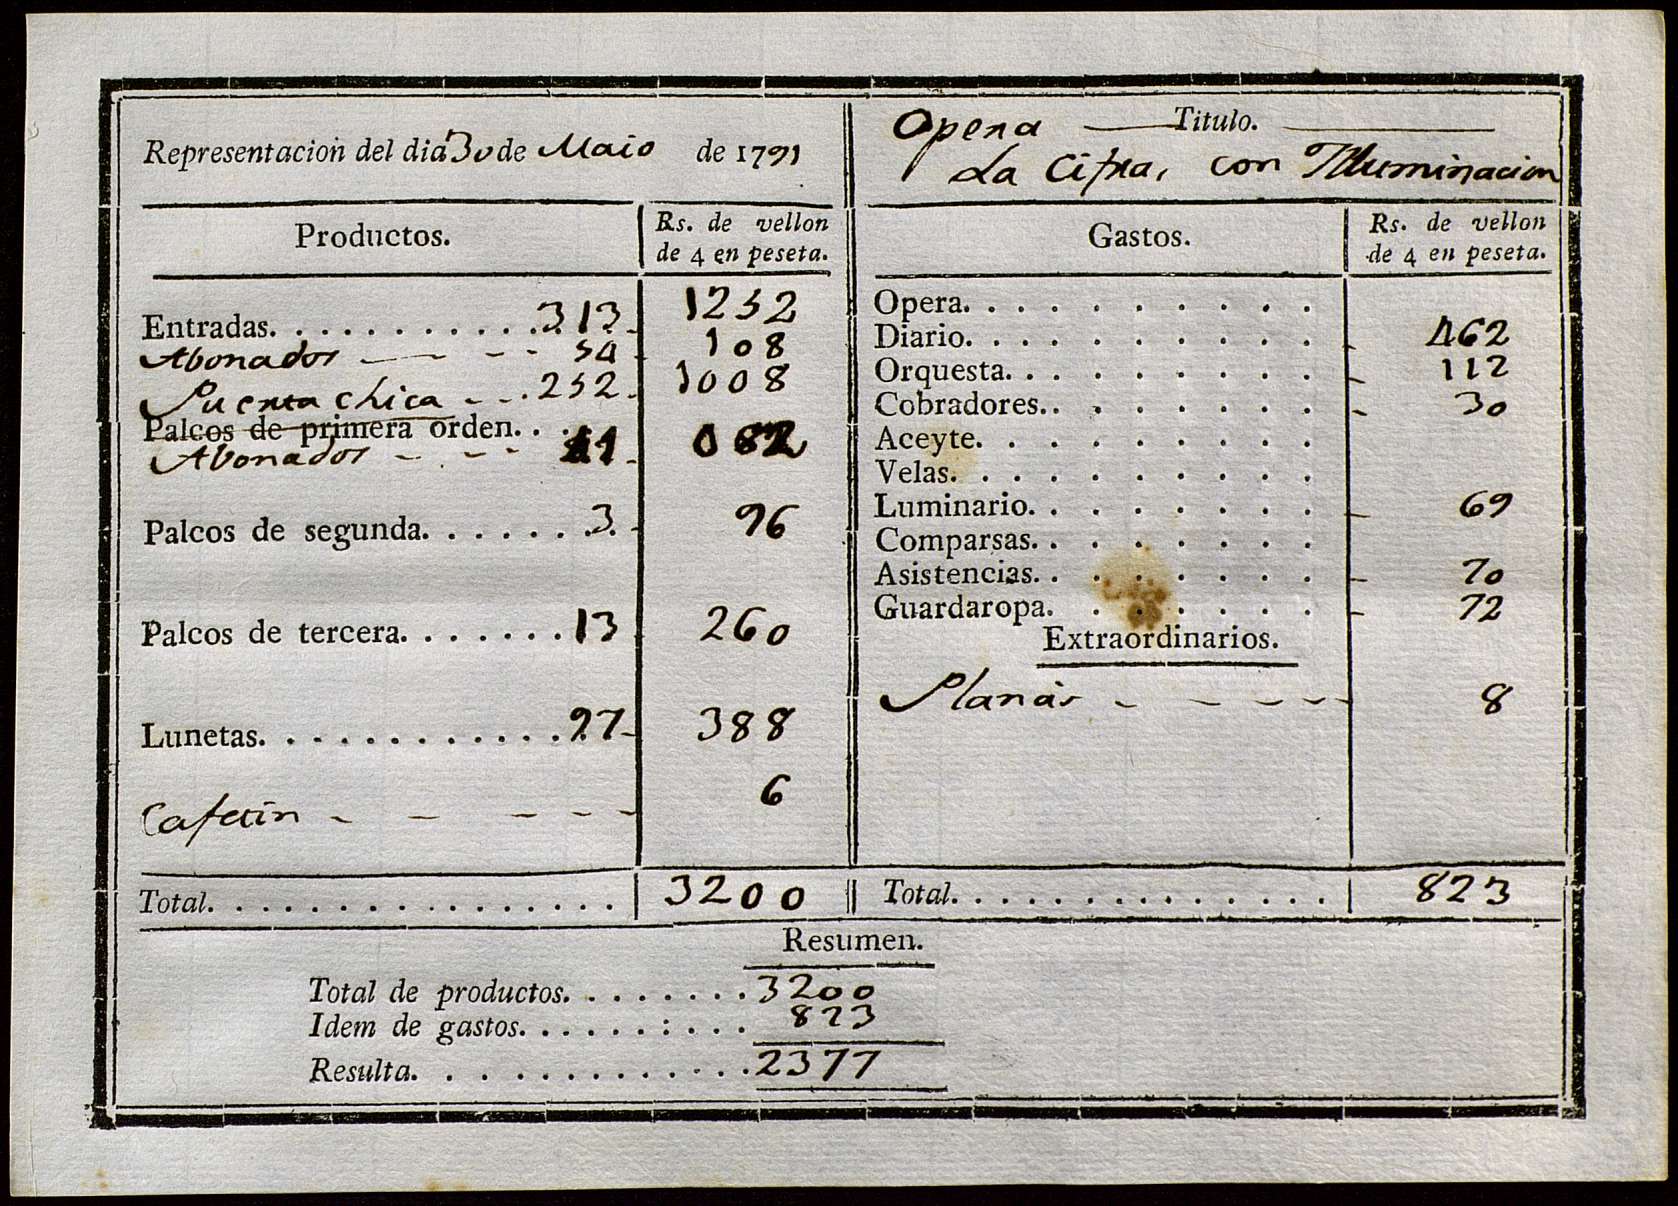 Representacion del dia 30 de Maio de 1791
Opera Titulo.
La Cifra, con Illuminacion
Productos. Rs. de vellon de 4 en peseta.
Entradas. 313 1252
Abonados 54 108
Puerta chica 252 1008
Palcos de primera orden.
Abonados 41 082
Palcos de segunda. 3 96
Palcos de tercera. 13 260
Lunetas. 97 388
Cafetin 6
Total. 3200
Gastos. Rs. de vellon de 4 en peseta.
Opera.
Diario. 462
Orquesta. 112
Cobradores. 30
Aceyte.
Velas.
Luminario. 69
Comparsas.
Asistencias. 70
Guardaropa. 72
Extraordinarios.
Planàs 8
Total. 823
Resumen.
Total de productos. 3200
Idem de gastos. 823
Resulta. 2377